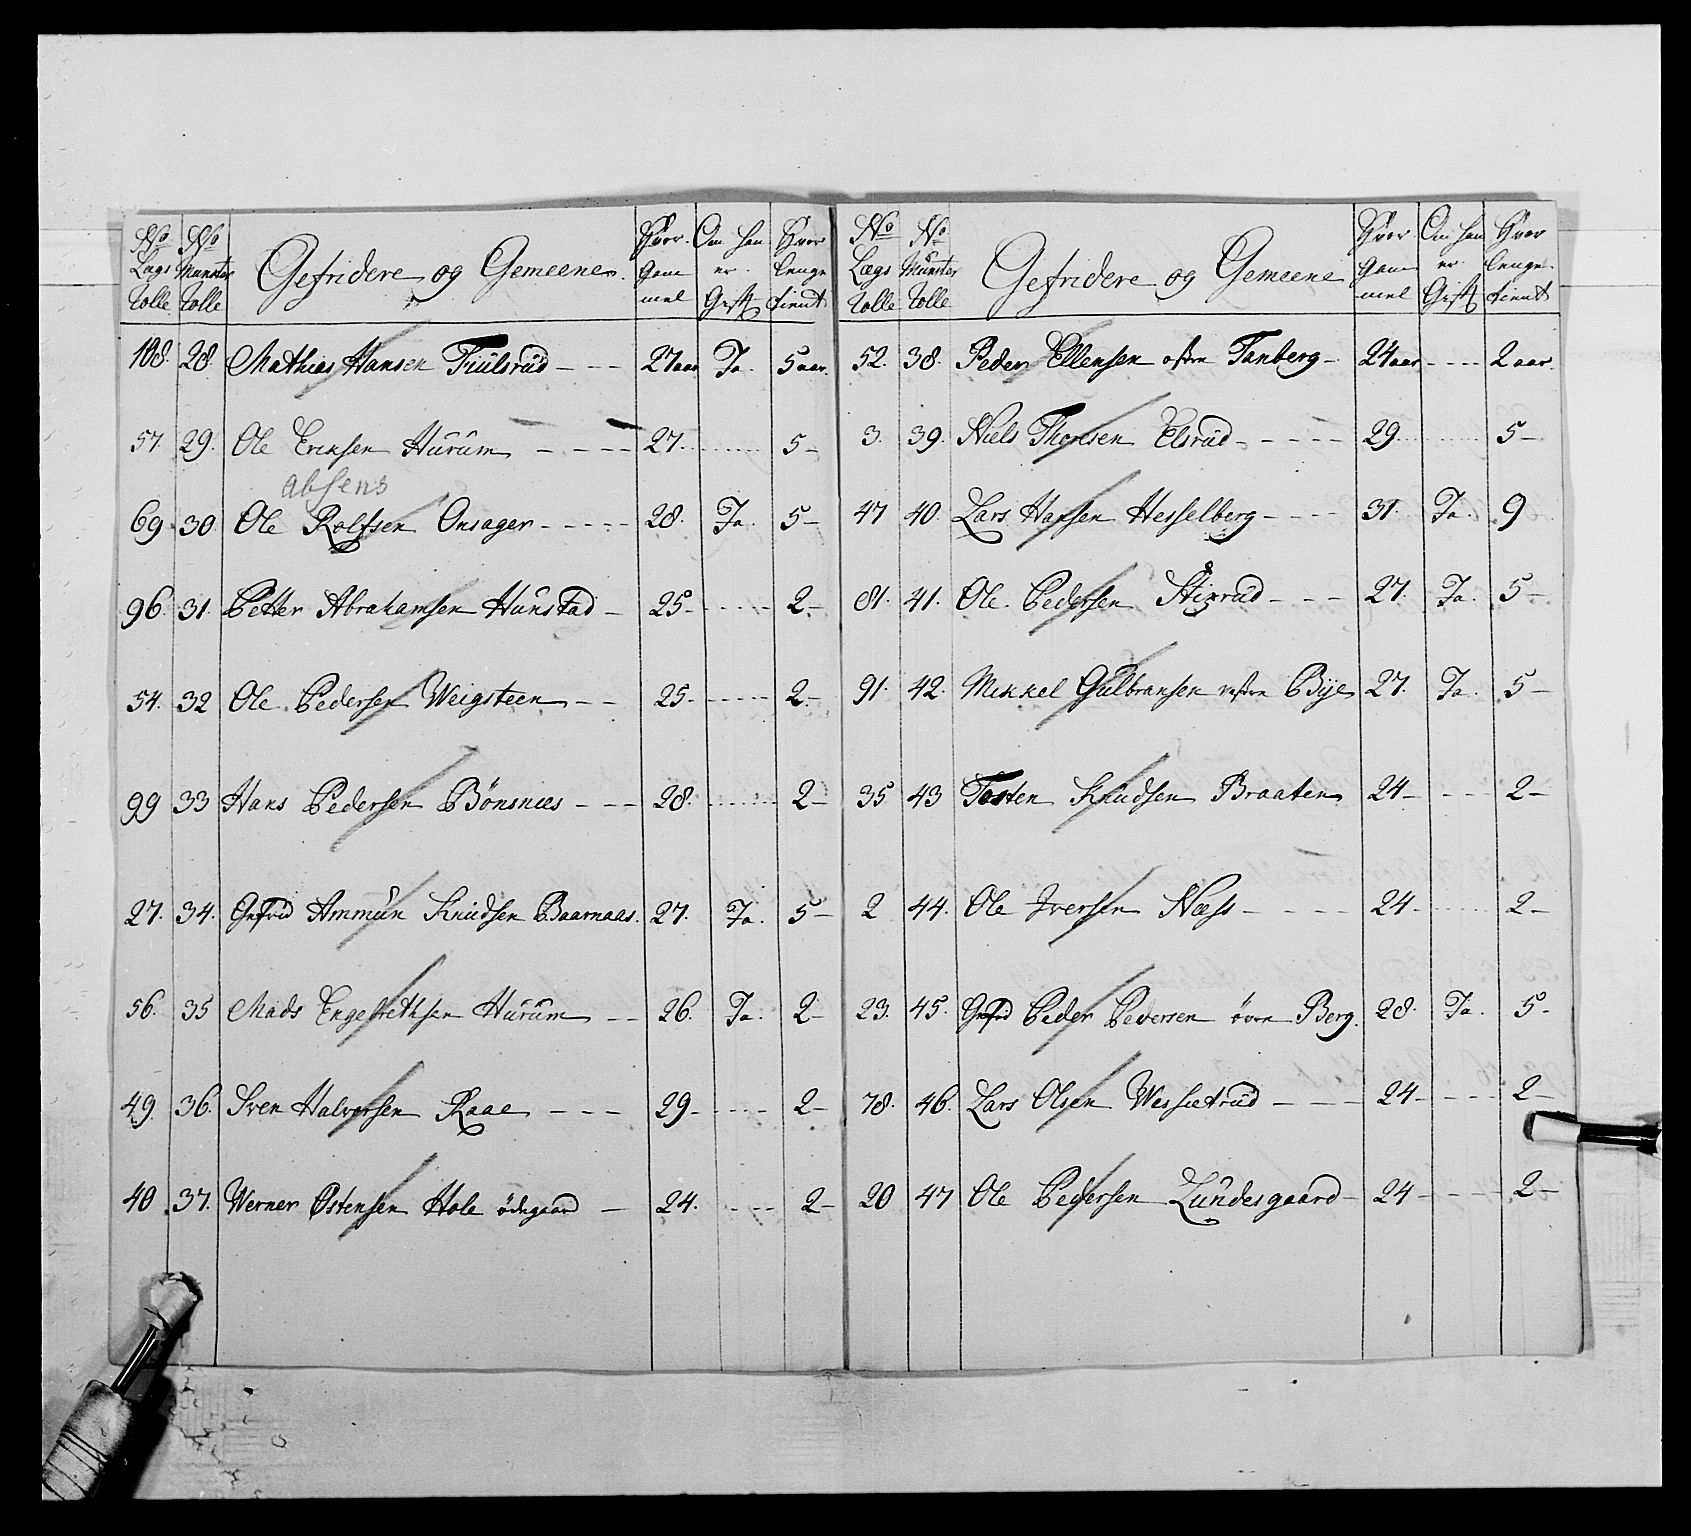 No No Gefridere og Gemeene. Hvor Om han Hvor
Lægs Munster gam er længe
Rolle Rolle mel Gift tient
108. 28. Mathias Hansen Fiulsrud - - - 27 aar Ja. 5 aar.
57. 29. Ole Eriksen Hurum - - - - 27. 5 -
absens
69. 30. Ole Rolfsen Onsager - - - - - 28. Ja. 5 -
96. 31. Petter Abrahamsen Hunstad - 25 - - - - - 2 -
54. 32 Ole Pedersen Weigsteen - - 25 - - - - - 2 -
99 33 Hans Pedersen Bönsnæs - - - 28. 2 -
27. 34. Gefrid Ammun Knudsen Baarnaas. 27. Ja. 5 -
56. 35 Mads Engebrethsen Hurum - - 26. Ja. 2 -
49. 36. Sven Halvorsen Raae - - - 29 - - - - - 2 -
40 37. Werner Østensen Hole ödegaard - 24. - - - 2 -
No No Gefridere og Gemeene Hvor Om han Hvor
Lægs Munster gam er længe
Rolle Rolle mel Gift tient
52. 38. Peder Ellensen østre Tanberg - 24 aar - - - - 2 aar.
3. 39. Niels Thoresen Elsrud - - - - - 29. 5 -
47 40. Lars Hansen Hesselberg - - - - 31. Ja. 9
81. 41. Ole Pedersen Stixrud - - - - 27. Ja. 5 -
91. 42. Mikkel Gulbransen vestre Bye 27. Ja. 5 -
35 43 Tosten Knudsen Braaten 24 - - - - 2 -
2 44. Ole Iversen Næss - - - - - 24 - 2 -
23. 45. Gefrid Peder Pedersen övre Berg. 28. Ja. 5 -
78. 46. Lars Olsen Wessetrud - - - 24 - - - - 2 -
20 47 Ole Pedersen Lundesgaard - 24 - - - - 2 -